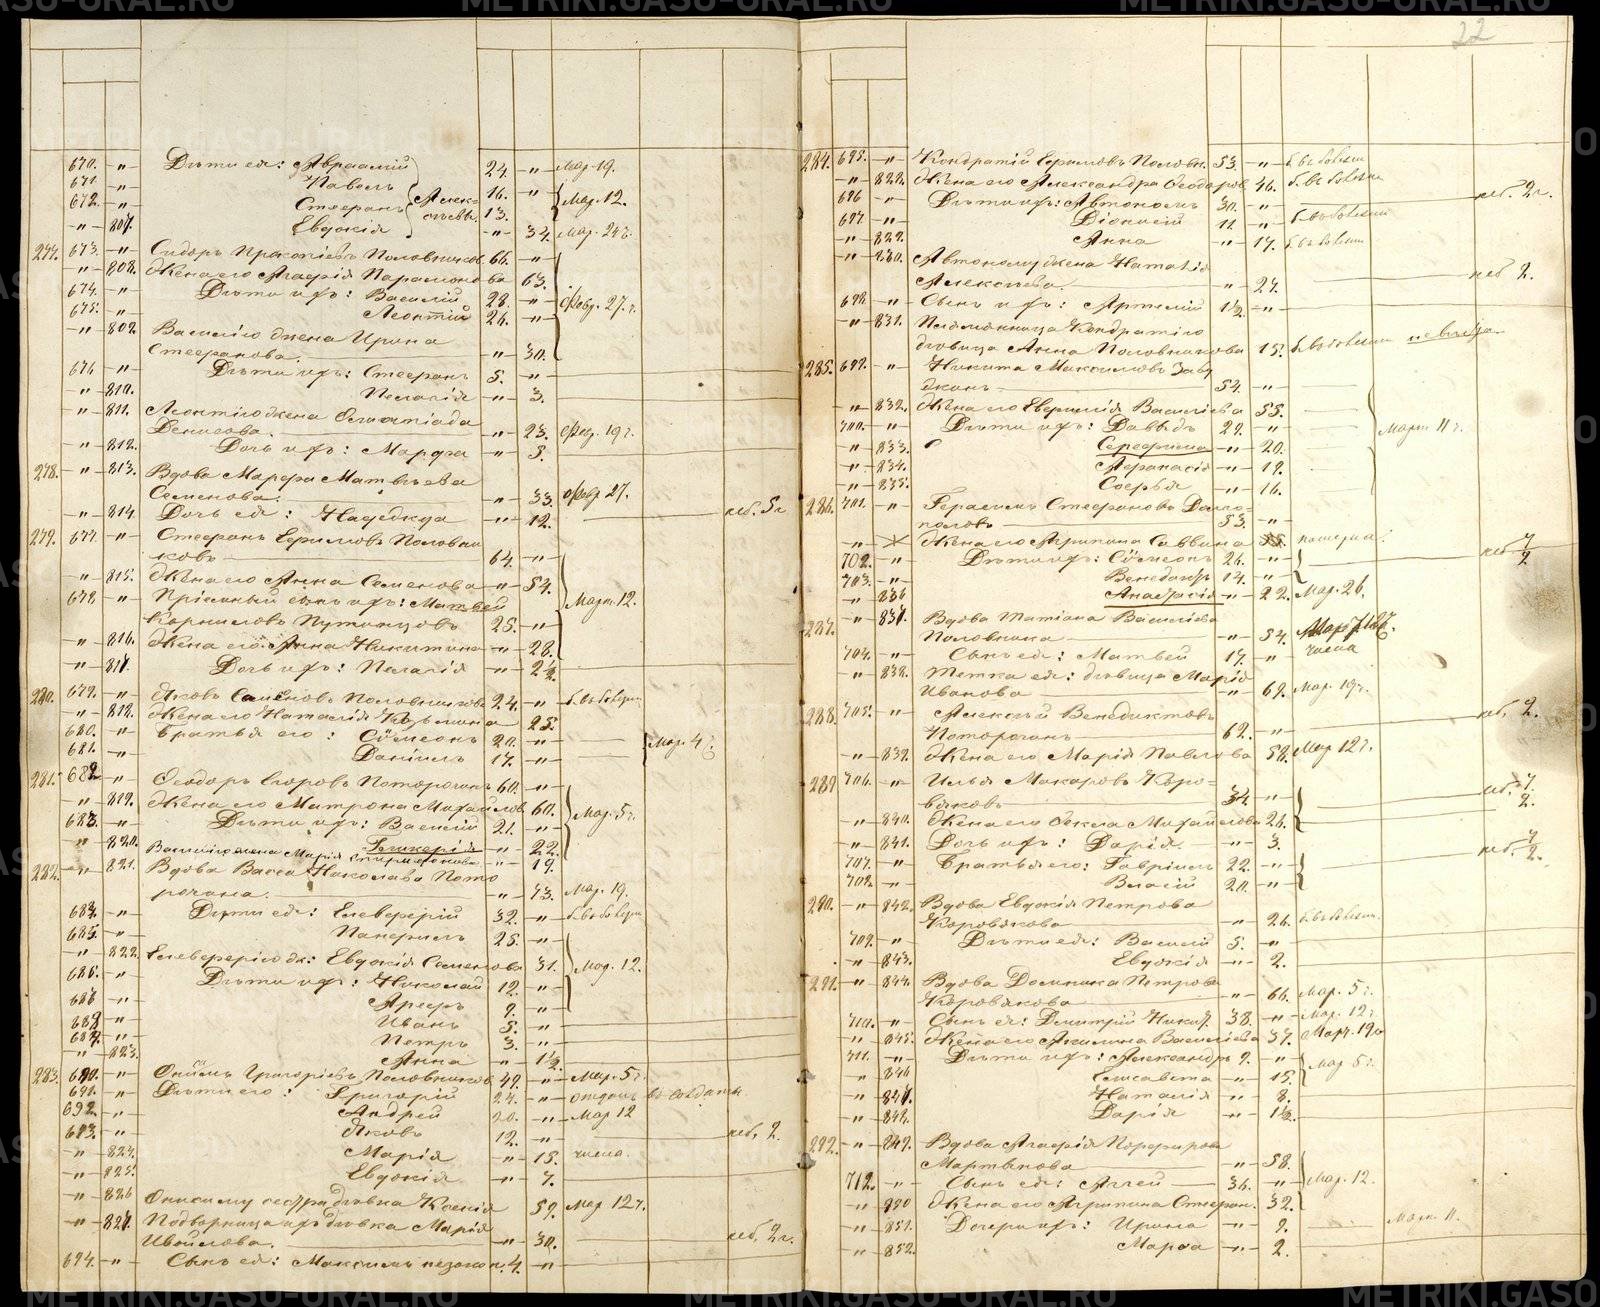 22
670. -"- Дѣти ея: Авраамій 24. -"- Мар. 19.
671 -"- Павелъ 16. -"-
672. -"- Стефанъ Алексѣевы. 13. -"- Мар. 12.
-"- 807. Евдокія -"- 32. Мар. 24 г.
277. 673. -"- Сидоръ Прокопіевъ Половников. 66. -"-
-"- 808. Жена его Агафія Парамонова 63.
674. -"- Дѣти ихъ: Василій 28. -"- Февр. 27. г.
675. -"- Леонтій 26. -"-
-"- 809. Василію жена Ирина
Стефанова. -"- 30.
676 -"- Дѣти ихъ: Стефанъ 5. -"-
-"- 810. Пелагія -"- 3.
-"- 811. Леонтію жена Олимпіада
Денисова. -"- 23. Фев. 19 г.
-"- 812. Дочь ихъ: Марфа -"- 3.
278. -"- 813. Вдова Марфа Матвѣева
Семенова: -"- 33. Февр 27.
-"- 814. Дочь ея: Надежда -"- 12. неб. 5 г
279. 677. -"- Стефанъ Ефимовъ Половни
ковъ 64. -"-
-"- 815. Жена его Анна Семенова -"- 54.
678. -"- Пріемный сынъ ихъ: Матвей Март. 12.
Корниловъ Путинцовъ 25. -"-
-"- 816. Жена его: Анна Никитина -"- 28.
-"- 817. Дочь ихъ: Пелагія -"- 2½.
280. 679. -"- Яковъ Семеновъ Половников. 24. -"- б. въ болѣзни.
-"- 818. Жена его Наталія Козьмина 25.
680. -"- Братья его: Сѵмеонъ 20. -"- Мар. 4 г.
681. -"- Даніилъ 17. -"-
281. 682. -"- Ѳеодоръ Егоровъ Поторочинъ 60. -"-
-"- 819. Жена его Матрона Михайлов. 60.
683. -"- Дѣти ихъ: Василій 21. -"- Мар. 5 г.
-"- 820. Гликерія -"- 22.
Василію жена Марія -"- 19.
282. -"- 821. Вдова Васса Николаева Пото
рочина. -"- 73. Мар. 19.
684. -"- Дѣти ея: Елеверерій 32. -"- б. въ болѣзн.
685. -"- Панфилъ 25. -"-
-"- 822. Елеверерію ж.: Евдокія Семенова 31. Мар. 12.
686. -"- Дѣти ихъ: Николай 12. -"-
687 -"- 9. -"-
688 -"- Иванъ 5. -"-
689. -"- Петръ 3. -"-
-"- 823. Анна -"- 1½.
283. 690. -"- Григоріевъ Половников. 49. -"- Мар. 5 г.
691. -"- Дѣти его: Григорій 24. -"- отданъ въ солдаты.
692. -"- Андрей 20. -"- Мар 12
693. -"- Яковъ 12. -"- неб. 2.
-"- 824. Марія -"- 15. числа.
-"- 825. Евдокія -"- 7.
-"- 826 Онисиму сестра дѣвка Ксенія 59. Мар 12 г.
-"- 827. Подворница ихъ дѣвка Марія
Ивойлова. -"- 30. неб. 2 г.
694. -"- Сынъ ея: Максимъ незакон. 4. -"-
284. 695. -"- Кондратій Ефимовъ Половн. 53. -"- б. въ болѣзни
-"- 828. Жена его Александра Ѳеодоров. 46. б. въ болѣзни
696 -"- Дѣти ихъ: Автономъ 30. -"- неб. 2 г.
697 -"- Діонисій 11 -"- б. въ болѣзни
-"- 829. Анна -"- 17. б. въ болѣзни
-"- 830. Автоному жена Наталія
Алексѣева. -"- 27. неб 2.
698. -"- Сынъ ихъ: Артемій 1½. -"-
-"- 831. Племянница Кондратію
дѣвица Анна Половникова 15. б. въ болѣзни
285. 699. -"- Никита Максимовъ Завь
яловъ 54. -"-
-"- 832. Жена его Евфимія Василіева 55.
700. -"- Дѣти ихъ: Давыдъ 22. -"- Март 11 г.
-"- 833. Серафима -"- 20.
-"- 834. Афанасія -"- 19.
-"- 835. Софья -"- 16.
286. 701. -"- Герасимъ Стефановъ Долго-
половъ 53. -"-
-"- Жена его Агрипина Саввина
702. -"- Дѣти ихъ: Сѵмеонъ 26. -"- неб 2
703. -"- Венедиктъ 14. -"-
-"- 836 Анастасія -"- 22. Мар. 26.
287. -"- 837. Вдова Татіана Василіева
Половника -"- 54.
704. -"- Сынъ ея: Матвей 17. -"- числа
-"- 838. Тетка ея: дѣвица Марія
Иванова -"- 69. Мар. 19 г.
288. 705. -"- Алексѣй Венедиктовъ
Поторочинъ 62. -"- неб. 2.
-"- 839. Жена его Марія Павлова 58. Мар 12 г.
289. 706. -"- Илья Макаровъ Коро-
вяковъ 34. -"- неб. 2.
-"- 840. Жена его Ѳекла Михайлова 26.
-"- 841. Дочь ихъ: Дарія. -"- 3.
707. -"- Братья его: Гавріилъ 22. -"- неб. 2.
708. -"- Власій 20. -"-
290. -"- 842. Вдова Евдокія Петрова
Коровякова -"- 26. б. въ болѣзни.
709. -"- Дѣти ея: Василій 5. -"-
-"- 843. Евдокія -"- 2.
291. -"- 844. Вдова Домника Петрова
Коровякова -"- 66. Мар. 5 г.
710. -"- Сынъ ея: Димитрій Никит. 38. -"- Мар. 12 г.
-"- 845. Жена его Акилина Василіева 37. Март. 19 г.
711. -"- Дѣти ихъ: Александръ 9. -"-
-"- 846 Елисавета -"- 15. Мар 5 г.
-"- 847. Наталія -"- 8.
-"- 848. Дарія -"- 1½.
292. -"- 849. Вдова Агафія Порфирова
Мартынова -"- 58.
712. -"- Сынъ ея: Аггей 36. -"- Мар. 12.
-"- 850 Жена его Агрипина Стефан. 32.
-"- 851. Дочери ихъ: Ирина -"- 9. Март. 11.
-"- 852. Марѳа -"- 2.